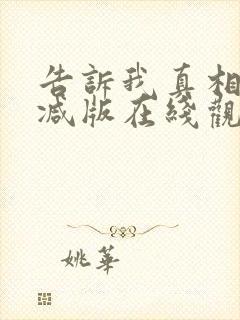 告訴我真相
减版在綫觀
姚華